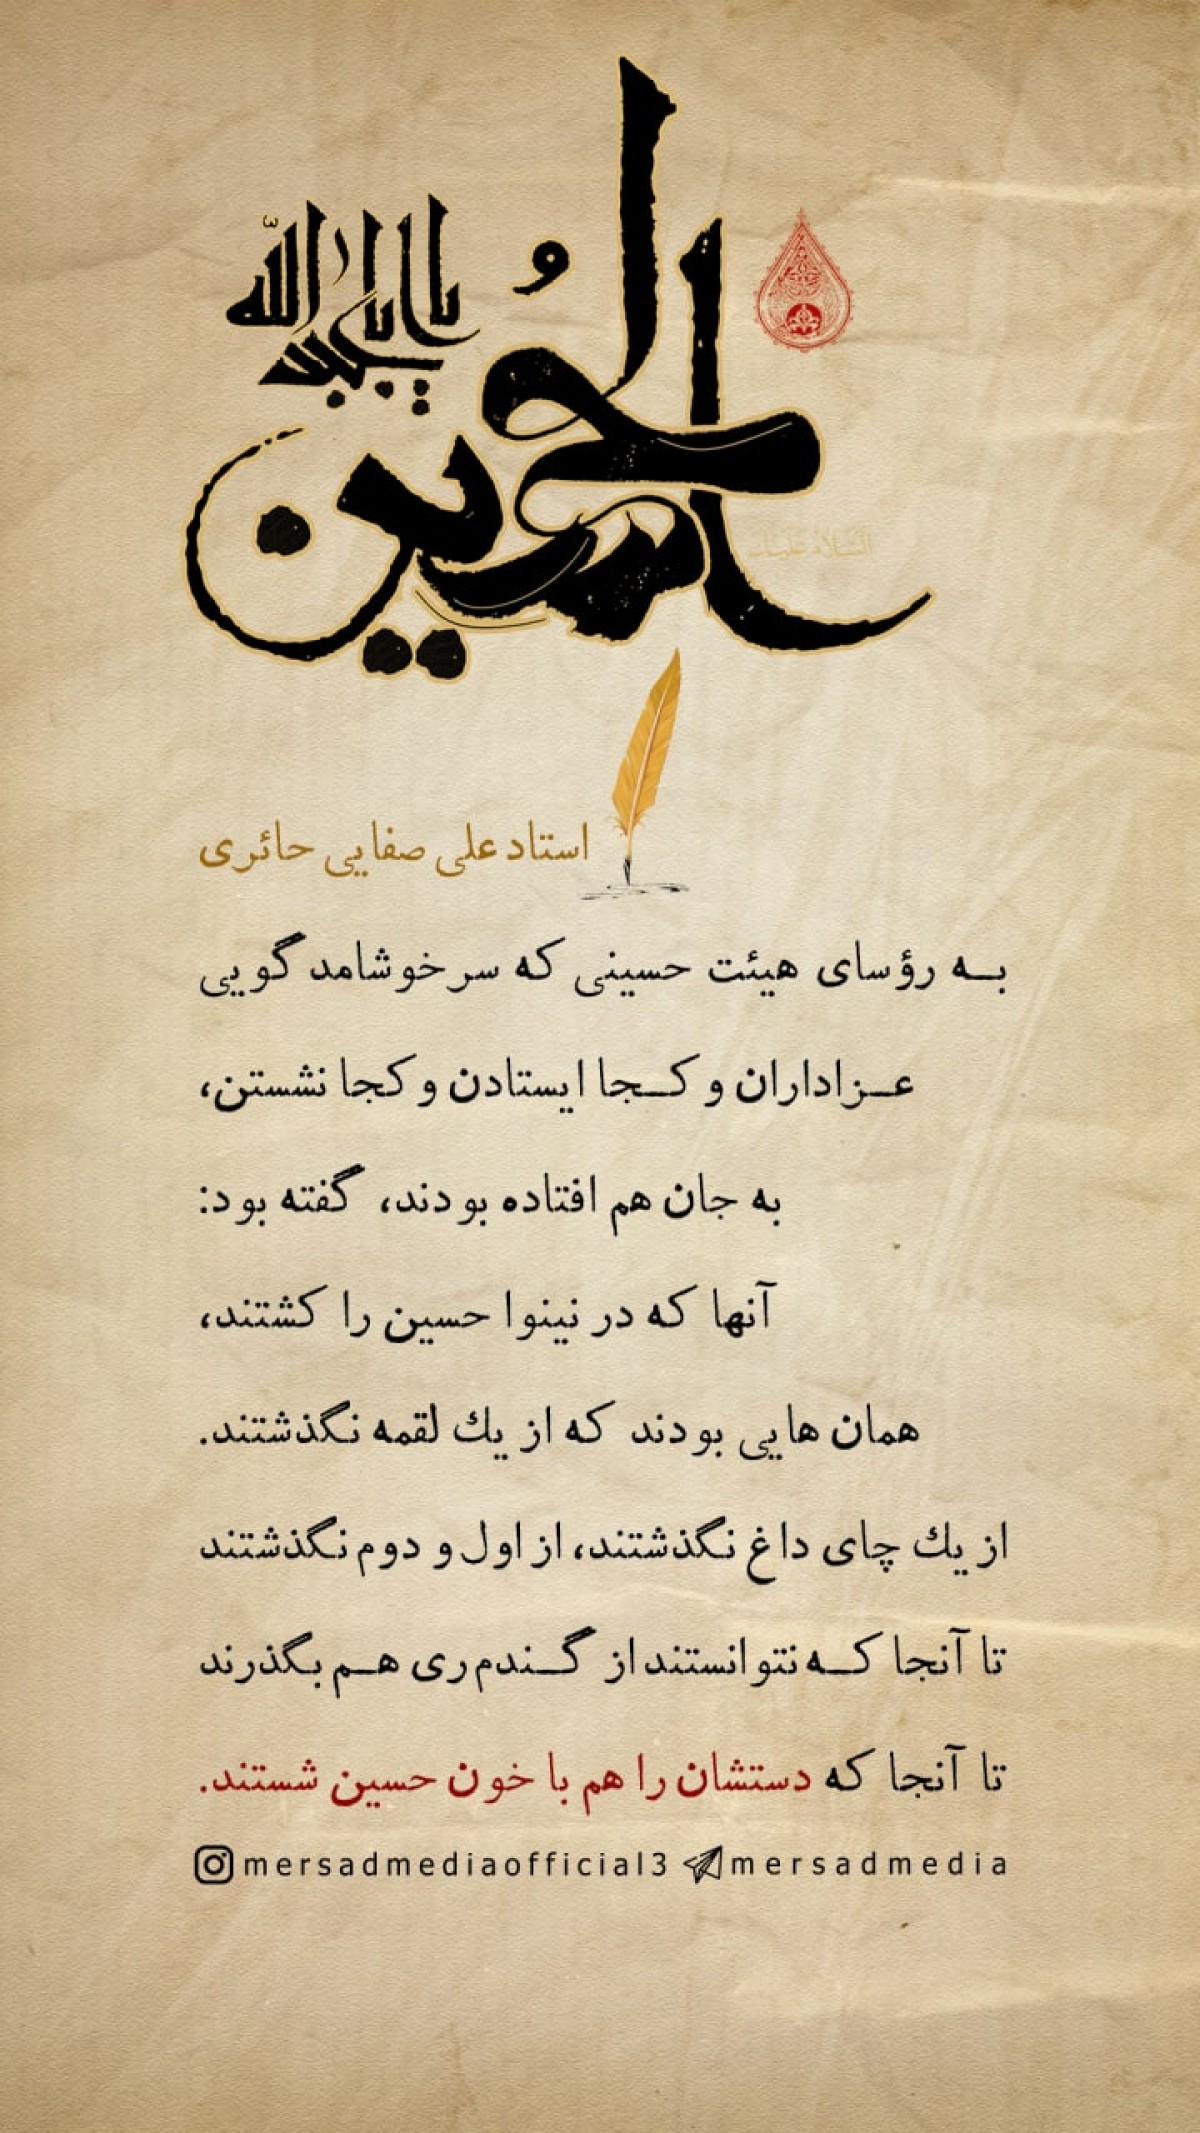 الحسین
یا اباعبدالله
السلام علیک
استاد علی صفایی حائری
به رؤسای هیئت حسینی که سر خوشامدگویی
عزاداران و کجا ایستادن و کجا نشستن،
به جان هم افتاده بودند، گفته بود:
آنها که در نینوا حسین را کشتند،
همان هایی بودند که از یك لقمه نگذشتند.
از یك چای داغ نگذشتند، از اول و دوم نگذشتند
تا آنجا که نتوانستند از گندم ری هم بگذرند
تا آنجا که دستشان را هم با خون حسین شستند.
mersadmediaofficial3 mersadmedia